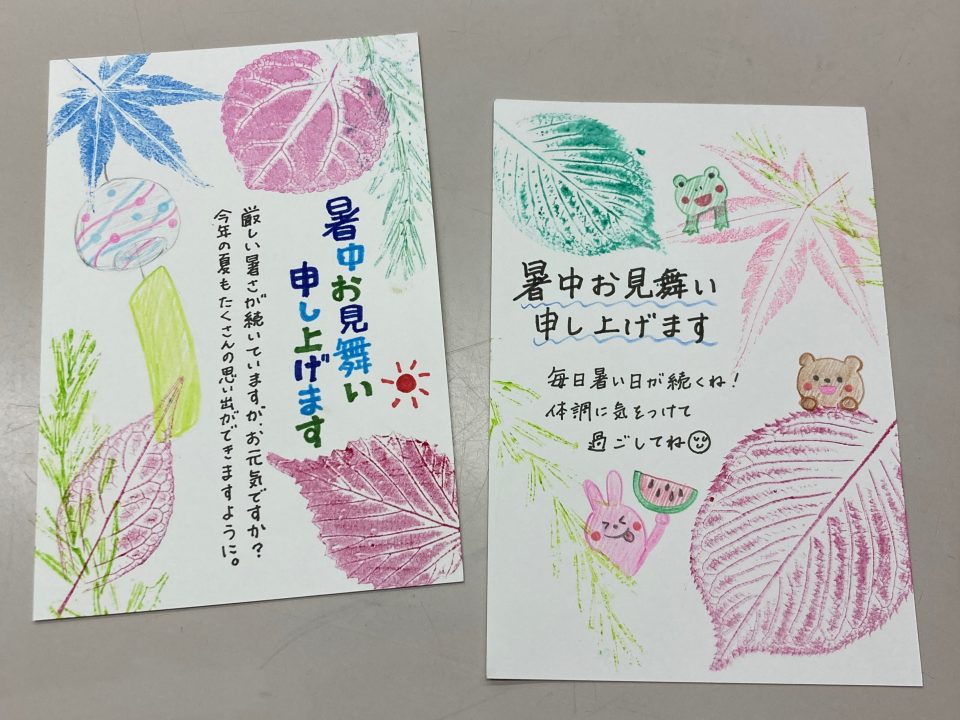 暑中お見舞い
申し上げます
厳しい暑さが続いていますが、お元気ですか？
今年の夏もたくさんの思い出ができますように。
暑中お見舞い
申し上げます
毎日暑い日が続くね！
体調に気をつけて
過ごしてね